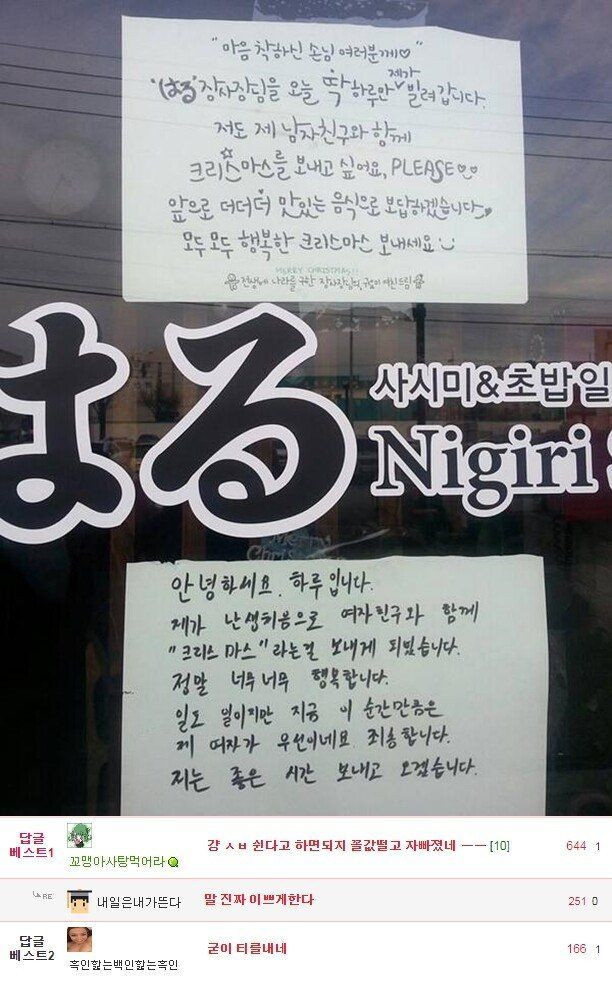 "마음 착하신 손님 여러분께♡"
'はる' 장사장님을 오늘 딱 하루만 제가 빌려갑니다.
저도 제 남자친구와 함께
크리스마스를 보내고 싶어요, PLEASE♡♡
앞으로 더더더 맛있는 음식으로 보답하겠습니다
모두모두 행복한 크리스마스 보내세요
MERRY CHRISTMAS!!
전생에 나라를 구한 장사장님의 여친드림
はる
사시미&초밥일
Nigiri
안녕하세요. 하루입니다.
제가 난생처음으로 여자친구와 함께
"크리스마스"라는걸 보내게 되었습니다.
정말 너무너무 행복합니다.
일도 일이지만 지금 이 순간만큼은
제 여자가 우선이네요. 죄송합니다.
저는 좋은 시간 보내고 오겠습니다.
답글 베스트1
꼬맹아사탕먹어라
걍 ㅅㅂ 쉰다고 하면되지 꼴값떨고 자빠졌네 ㅡㅡ [10]
644 1
RE
내일은내가뜬다
말 진짜 이쁘게한다
251 0
답글 베스트2
흑인핥는백인핥는흑인
굳이 티를내네
166 1